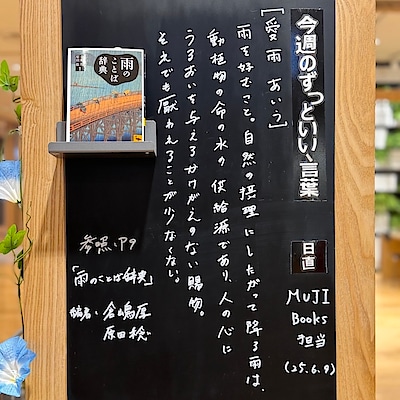 今週のずっといい言葉
[愛雨 あいう]
雨を好むこと。自然の摂理にしたがって降る雨は、
動植物の命の水の供給源であり、人の心に
うるおいを与えるかけがえのない賜物。
それでも厭われることが少なくない。
雨のことば辞典
参照:P9
「雨のことば辞典」
編者:倉嶋厚
原田稔
日直
MUJI
Books
担当
(25.6.9)